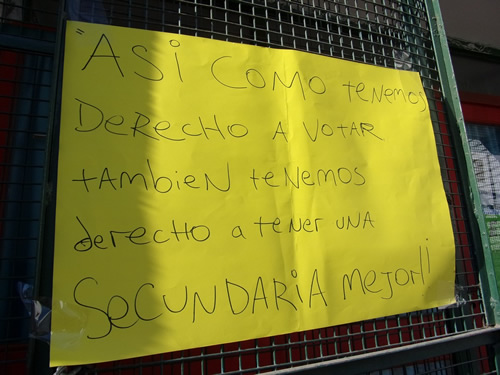 "ASi COMO teNEMOS
DeRECHO A VOtAR
tAMbieN teNEMOS
derecho a teNER UNA
SeCUNDARiA MeJOR!!